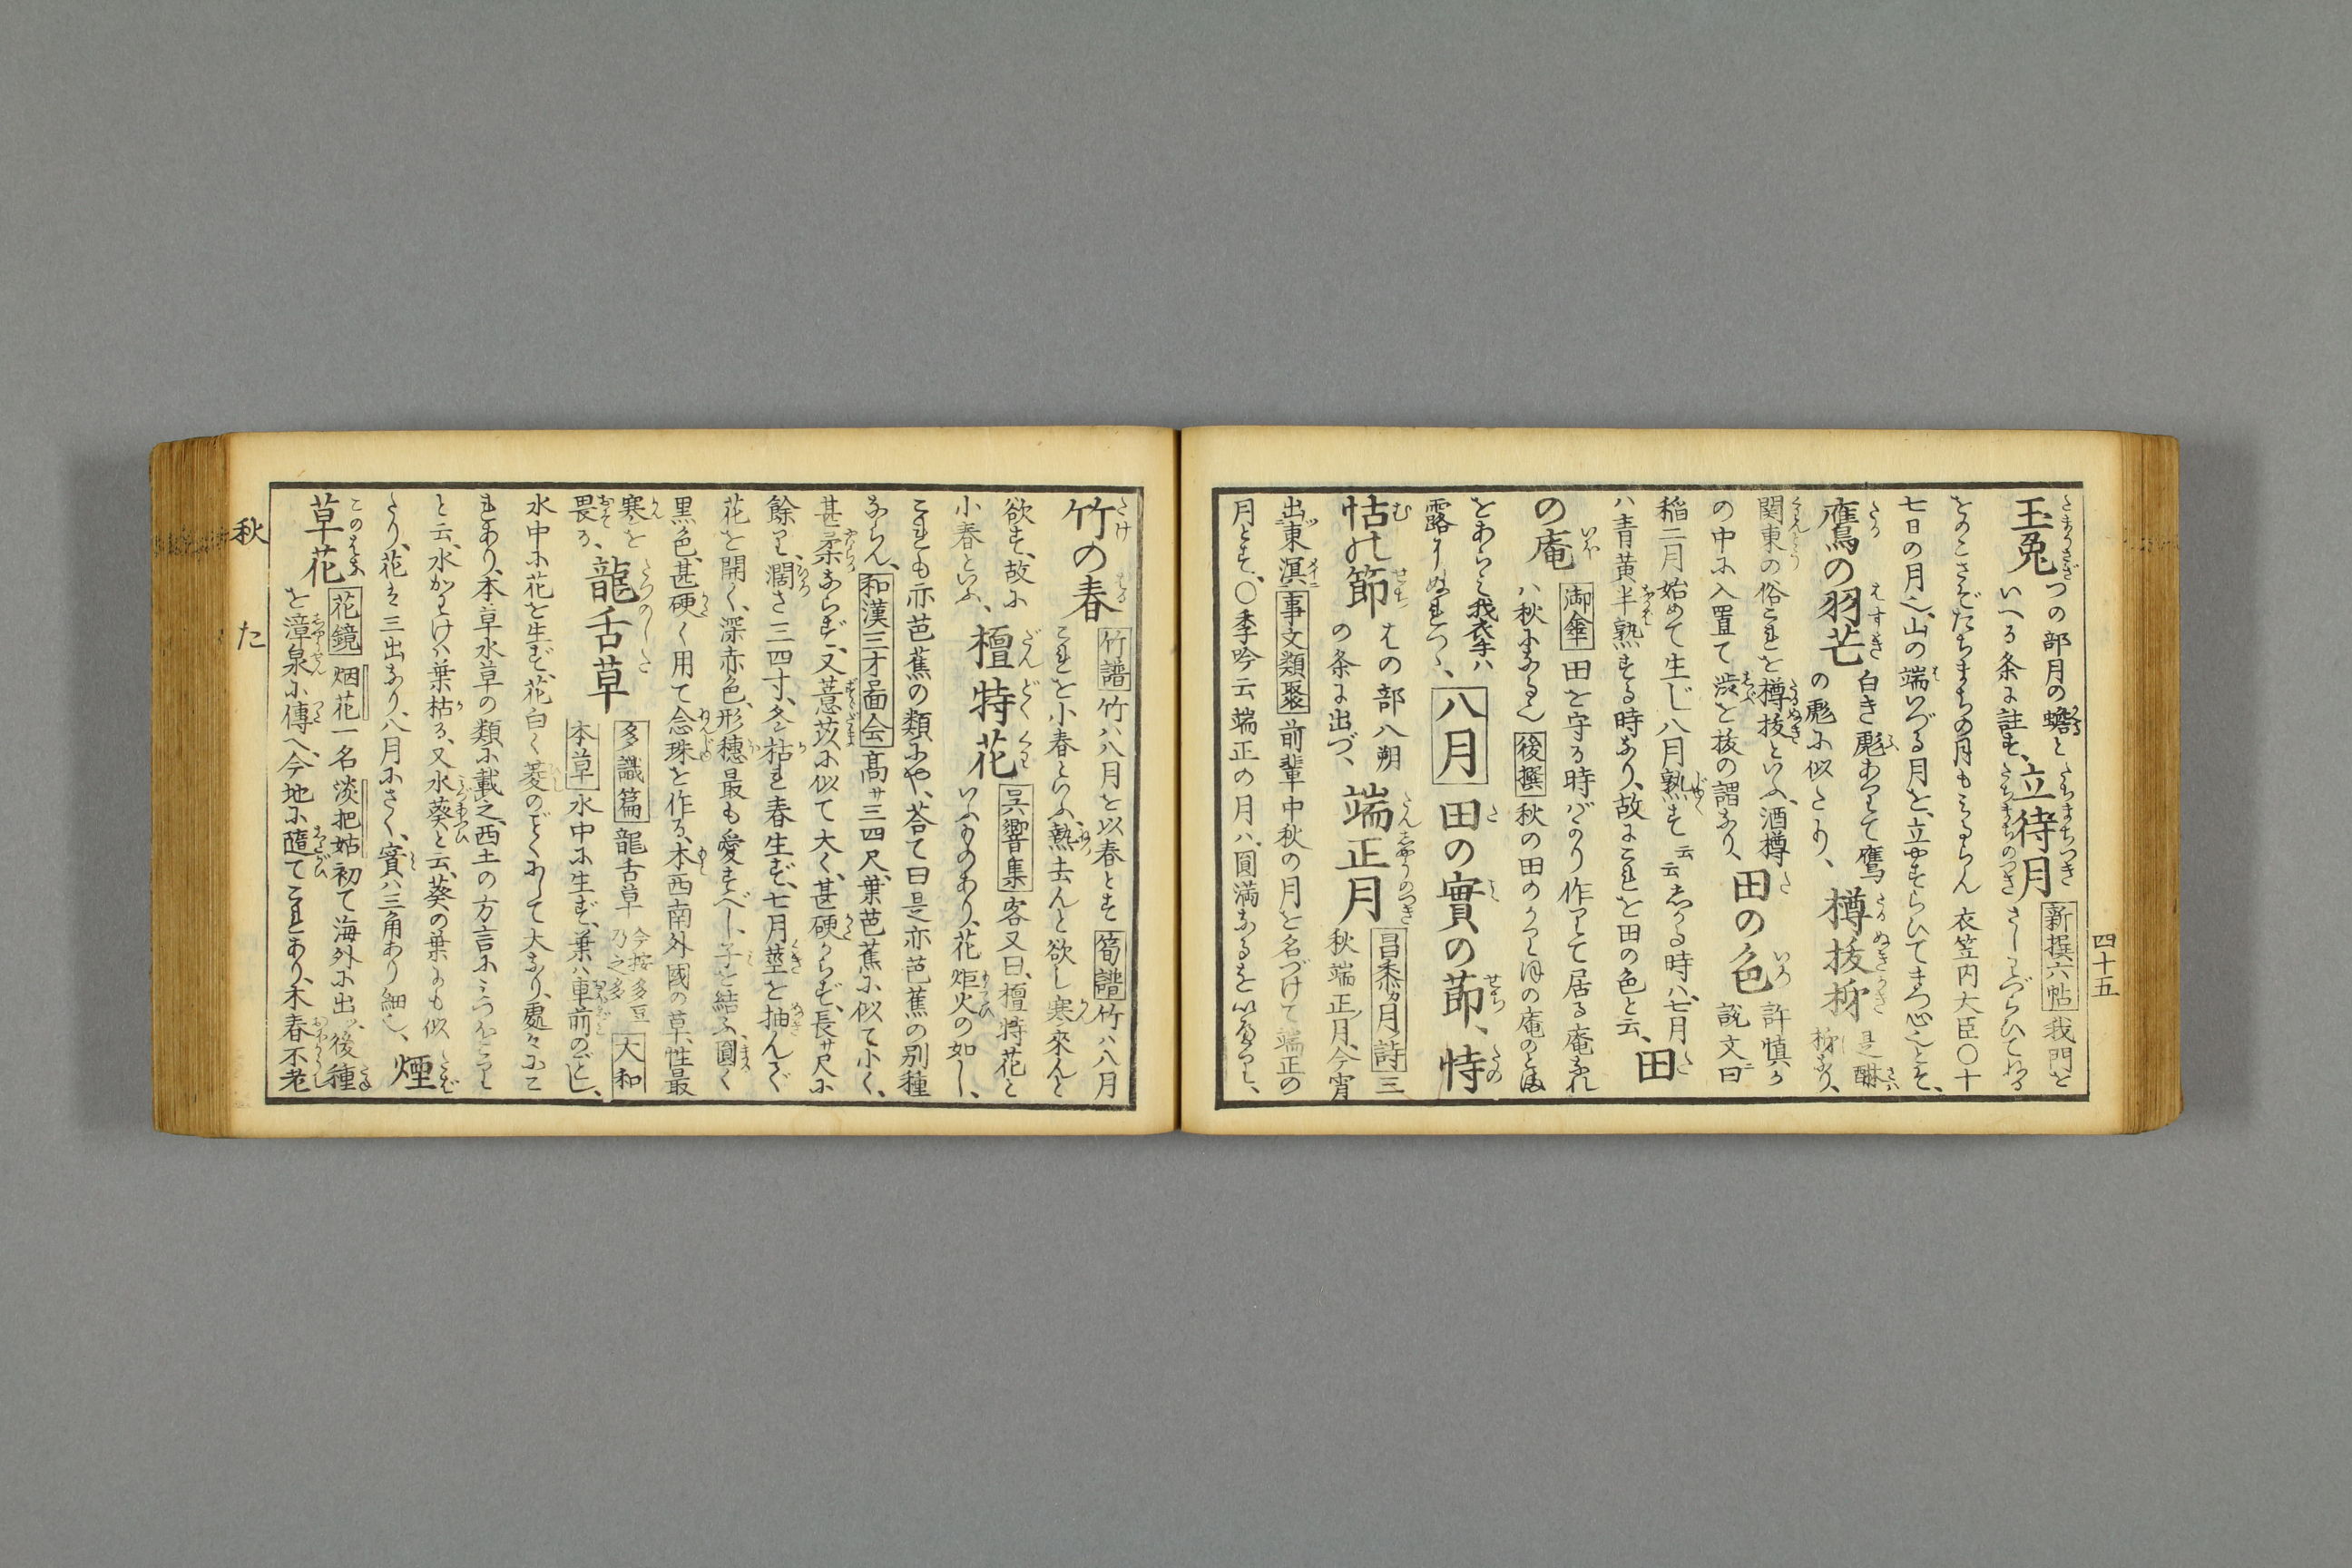 四十五
玉兎 つの部月の蟾と
いへる条に註す、立待月 新撰六帖 我門を
をのこさぞたちまちの月もみるらん 衣笠内大臣〇十
七日の月也、山の端いづる月を、立やすらひてまつ心とぞ、
鷹の羽芒 白き彪ありて鷹
の彪に似たり、樽抜柿 是醂
柿なり、
関東の俗これを樽抜といふ、酒樽
の中に入置て渋を抜の謂なり、田の色 許慎が
説文曰
稲二月始めて生じ八月熟す云云しかる時ハ、七月
ハ青黄半熟する時なり、故にこれを田の色と云、田
の庵 御傘 田を守る時ばかり作りて居る庵なれ
ハ秋になる也 後撰 秋の田のかりほの庵のとま
をあらみ我衣手ハ
露にぬれつゝ、八月 田の實の節、恃
怙の節 はの部八朔
の条に出づ、端正月 昌黎月詩 三
秋端正月、今宵
出東溟 事文類聚 前輩中秋の月を名づけて端正の
月とす、〇季吟云端正の月ハ、圓満なるを
竹の春 竹譜 竹ハ八月を以春とす 筍譜 竹ハ八月
これを小春といふ、熱去んと欲し寒來んと
欲す、故に
小春といふ、檀特花 呉響集 客又曰、檀特花と
いふものあり、花炬火の如し、
これも亦芭蕉の類にや、荅て曰是亦芭蕉の別種
ならん、和漢三才圖会 高サ三四尺、葉芭蕉に似て小く、
甚柔ならず、又薏苡に似て大く、甚硬からず、長サ尺に
餘り、濶さ三四寸、冬ハ枯れ春生ず、七月莖を抽んで
花を開く、深赤色、形穗最も愛すべし、子を結ぶ、圓く
黒色、甚硬く用て念珠を作る、本西南外國の草、性最
寒を
畏る、龍舌草 多識篇 龍舌草 今按多豆
乃之多 大和
本草 水中に生ず、葉ハ車前のごとし、
水中に花を生ず、花白く菱のごとくにして大なり、處々にこ
れあり、本草水草の類に載之、西土の方言にみづほこり
と云、水かわけハ葉枯る、又水葵と云、葵の葉にも似
たり、花は三出なり、八月にさく、實ハ三角あり細也、煙
草花 花鏡 烟花一名淡把姑初て海外に出ツ、後種
を漳泉に傳へ、今地に隨てこれあり、木春不老
秋
た